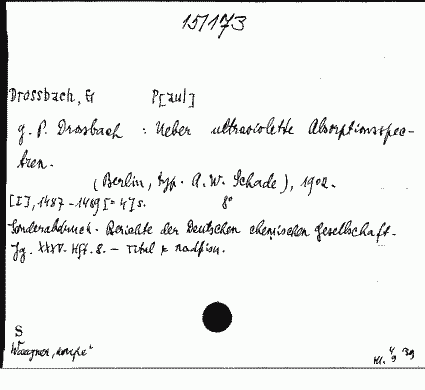 15/173
Drossbach, G P[aul]
g. P. Drossbach : Ueber ultraviolette Absorptionsspec-
tren.
(Berlin, typ. A. W. Schade), 1902.
[I], 1487-1489 [= 4] s. 8°
Sonderabdruck. Berichte der Deutschen chemischen Gesellschaft.
Jg. XXXV. Hft. 8. - Titul
S
Waagner,
Kl. 4/9 39